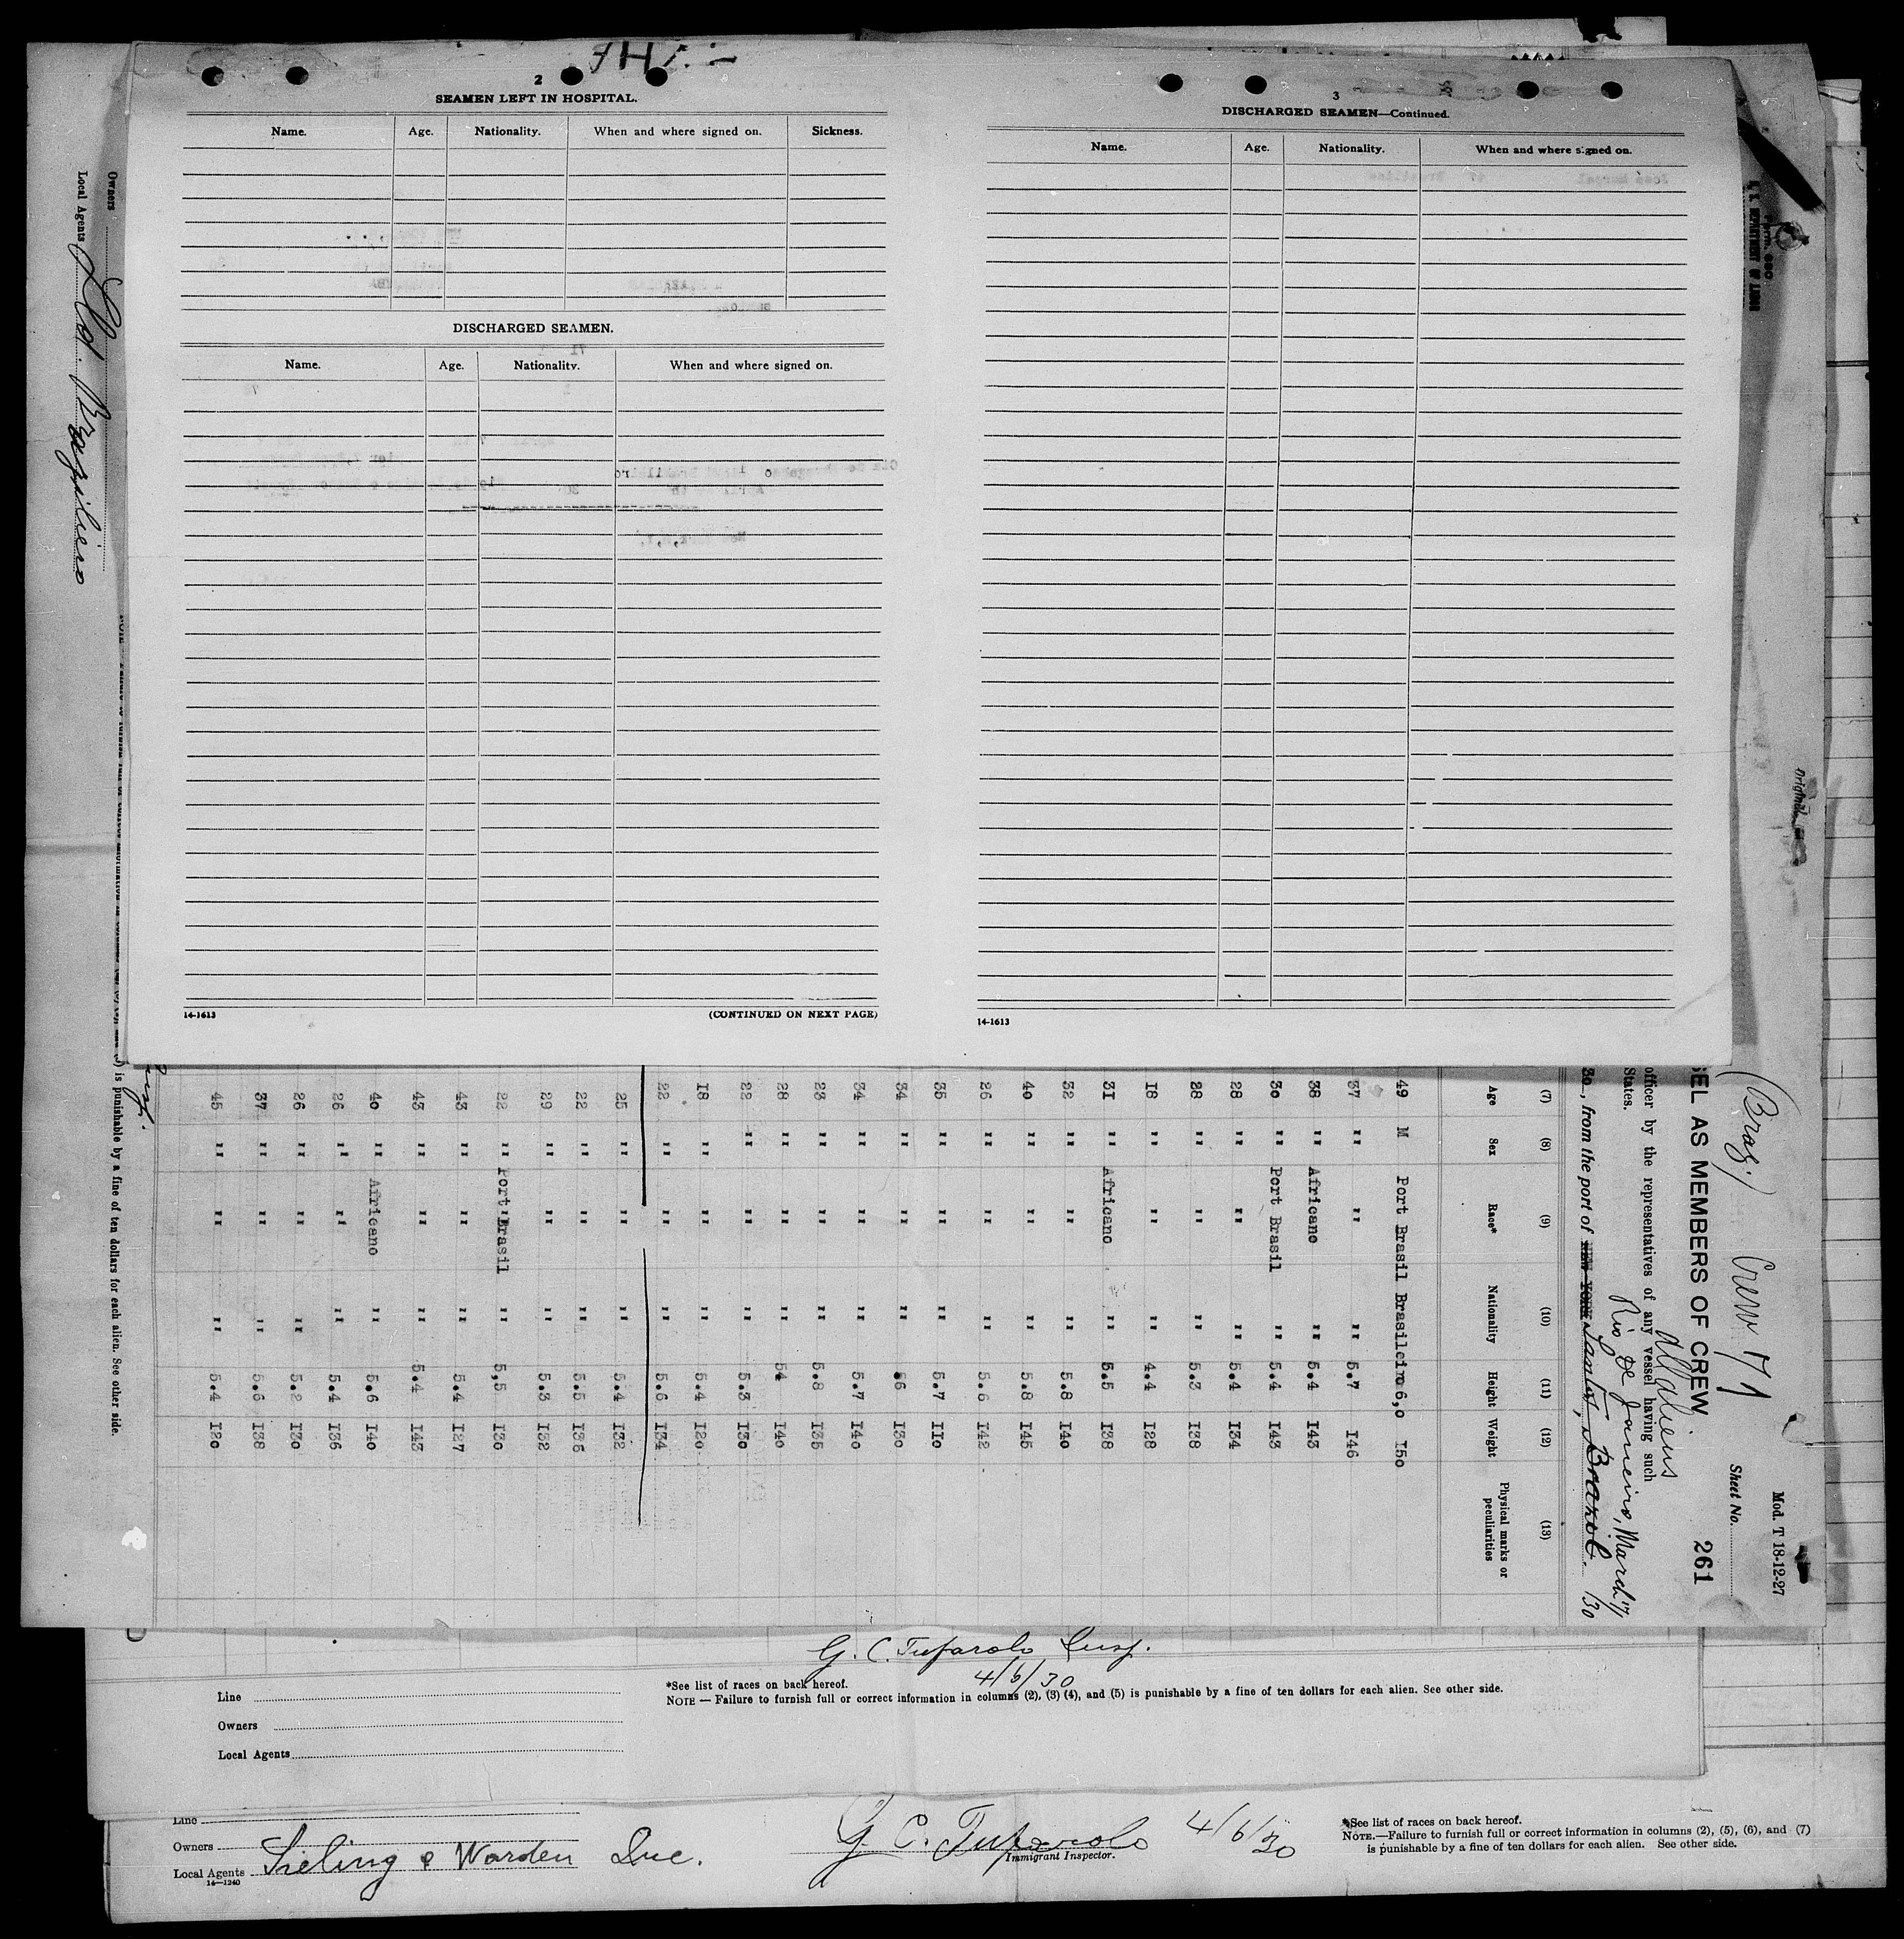 2
SEAMEN LEFT IN HOSPITAL.
Name. Age. Nationality. When and where signed on. Sickness.
DISCHARGED SEAMEN.
Name. Age. Nationality. When and where signed on.
14-1613 (CONTINUED ON NEXT PAGE)
3
DISCHARGED SEAMEN—Continued.
Name. Age. Nationality. When and where signed on.
14-1613
Owners
Local Agents Lloyd Brazilieiro
U. S. DEPARTMENT OF LABOR
Original
Mod. T 18-12-27
Sheet No.
(Braz.) Crew 71
261
SEL AS MEMBERS OF CREW
All aliens
officer by the representatives of any vessel having such
States.
Rio de Janeiro, March 17, 130
30, from the port of NEW YORK Santos, Brazil.
(7) (8) (9) (10) (11) (12) (13)
Age Sex Race* Nationality Height Weight Physical marks or peculiarities
49 M Port Brasil Brasileiro 6,0 I50
37 " " " 5.7 I46
38 " Africano " 5.4 I43
30 " Port Brasil " 5.4 I43
28 " " " 5.4 I34
28 " " " 5.3 I38
I8 " " " 4.4 I28
3I " Africano " 5.5 I38
32 " " " 5.8 I40
40 " " " 5.8 I45
26 " " " 5.6 I42
35 " " " 5.7 II0
34 " " " 56 I30
34 " " " 5.7 I40
23 " " " 5.8 I35
28 " " " 54 I40
22 " " " 5.3 I30
I8 " " " 5.4 I20
22 " " " 5.6 I34
25 " " " 5.4 I32
22 " " " 5.5 I36
29 " " " 5.3 I32
22 " Port Brasil " 5,5 I30
43 " " " 5.4 I27
43 " " " 5.4 I43
40 " Africano " 5.6 I40
26 " " " 5.4 I36
26 " " " 5.2 I30
37 " " " 5.6 I38
45 " " " 5.4 I20
is punishable by a fine of ten dollars for each alien. See other side.
G. C. Tufarolo Insp.
4/6/30
*See list of races on back hereof.
NOTE — Failure to furnish full or correct information in columns (2), (3) (4), and (5) is punishable by a fine of ten dollars for each alien. See other side.
Line
Owners
Local Agents
Line
Owners
Local Agents Sieling & Warden Inc.
14—1240
G. C. Tufarolo 4/6/30
Immigrant Inspector.
*See list of races on back hereof.
NOTE.—Failure to furnish full or correct information in columns (2), (5), (6), and (7)
is punishable by a fine of ten dollars for each alien. See other side.